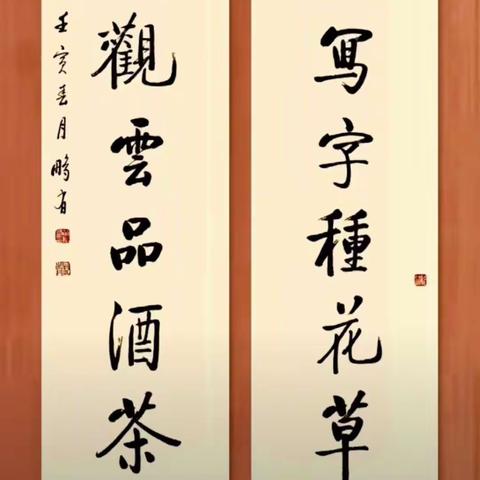 寫字種花草
觀雲品酒茶
壬寅春月鵬官